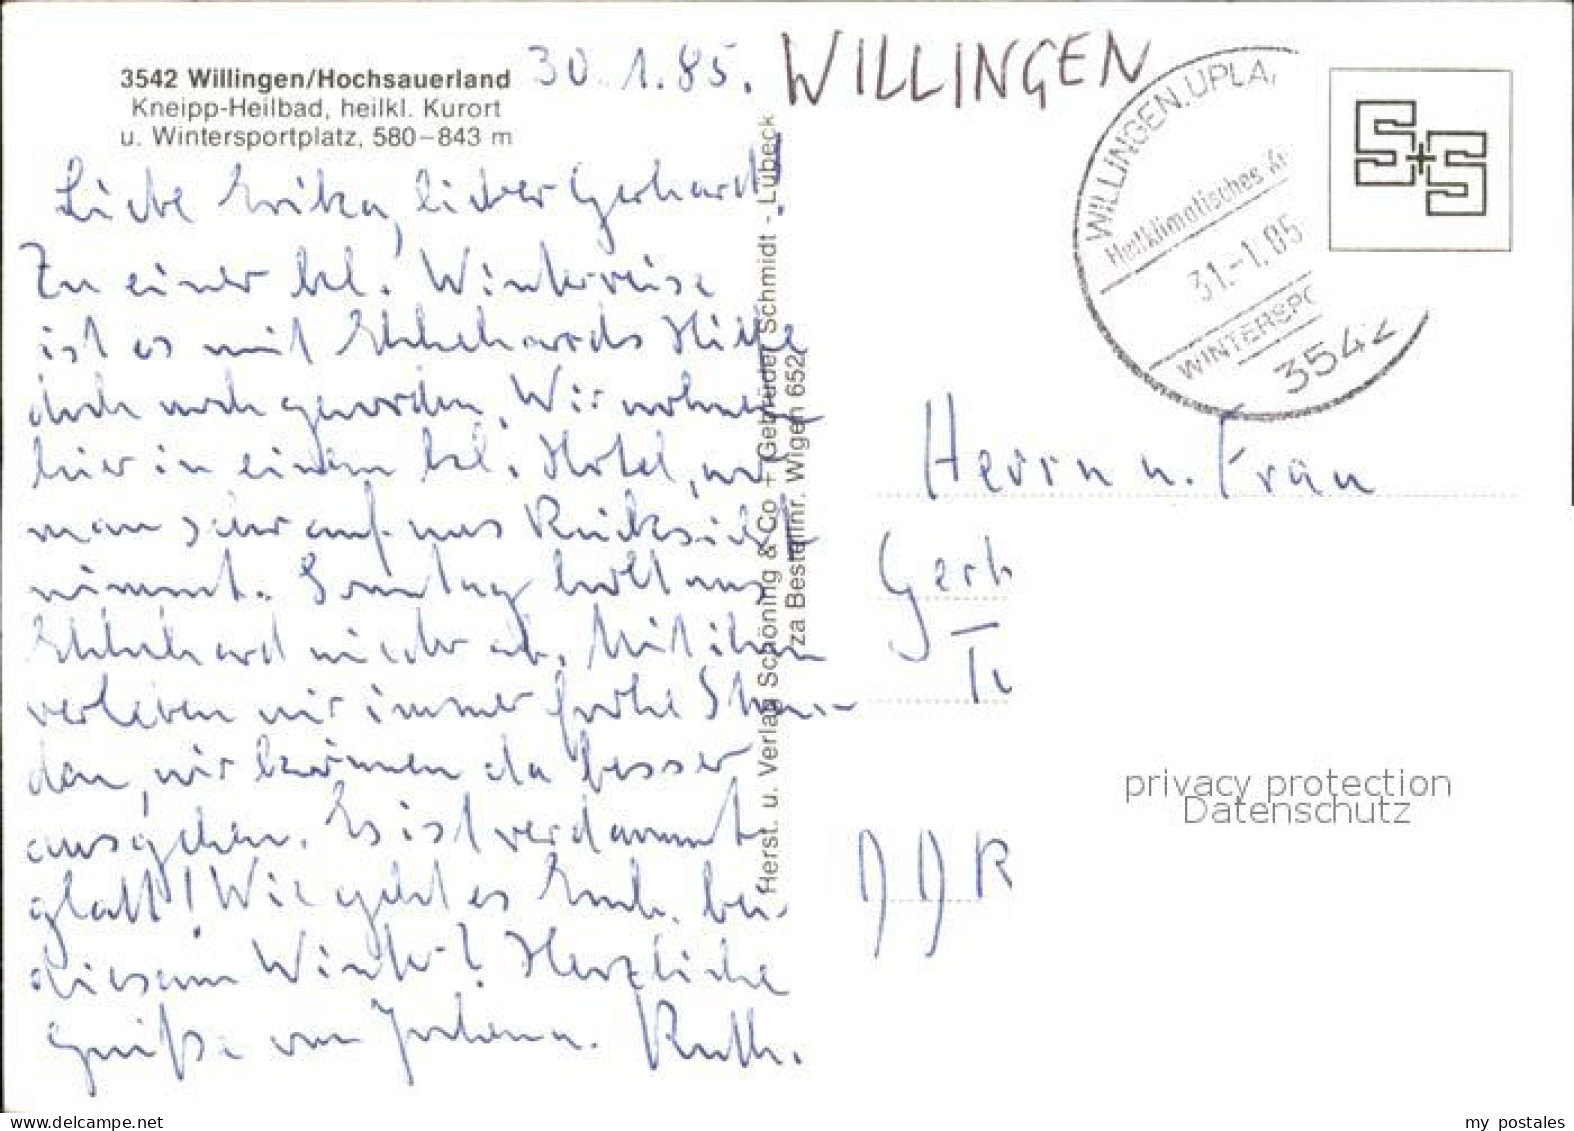 3542 Willingen/Hochsauerland
Kneipp-Heilbad, heilkl. Kurort
u. Wintersportplatz, 580–843 m
30.1.85. WILLINGEN
Liebe Erika, lieber Gerhardt.
Zu einer kl. Winterreise
ist es mit Ekkehards Hilfe
doch noch geworden. Wir wohnen
hier in einem kl. Hotel, wo
man sehr auf uns Rücksicht
nimmt. Sonntag holt uns
Ekkehard wieder ab. Mit ihm
verleben wir immer frohe Stun-
den, wir können da besser
ausgehen. Es ist verdammt
glatt! Wie geht es Euch bei
diesem Winter? Herzliche
Grüße von Johanna. Ruth.
Herst. u. Verlag Schöning & Co + Gebrüder Schmidt - Lübeck
za Bestellnr. Wigen 652
WILLINGEN, UPLA
Heilklimatisches
31.-1.85
WINTERSPO
3542
S+S
Herrn u. Frau
Gerh
DDR
privacy protection
Datenschutz
www.delcampe.net
my_postales